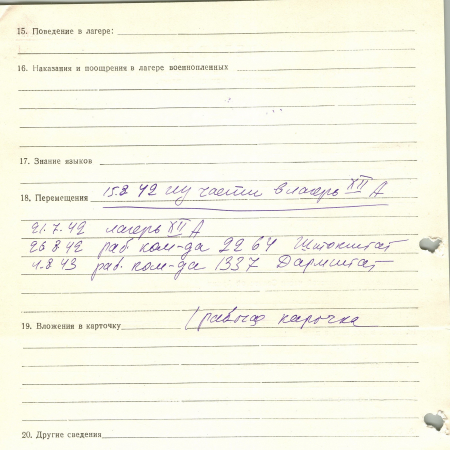 15. Поведение в лагере:
16. Наказания и поощрения в лагере военнопленных
17. Знание языков
18. Перемещения 15.8.42 из части в лагерь XII А
21.7.42 лагерь XII А
26.8.42 раб. ком-да 2264 Штокштат
1.8.43 раб. ком-да 1337 Дармштат
19. Вложения в карточку 1 рабочая карточка
20. Другие сведения